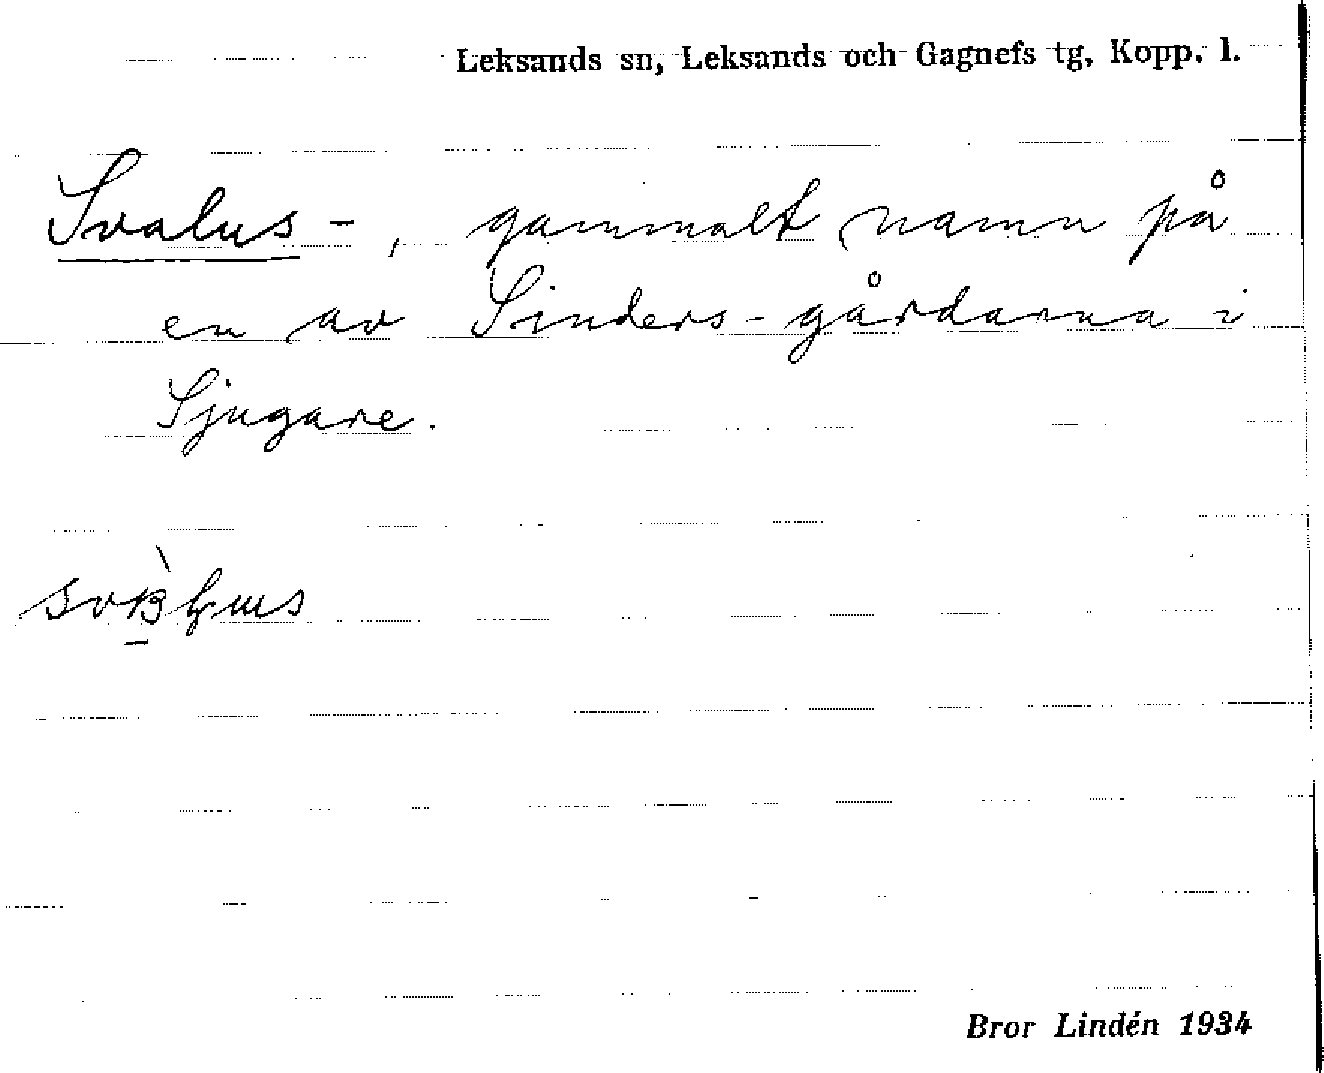 Leksands sn, Leksands och Gagnefs tg, Kopp. l.
Svalus-, gammalt namn på
en av Sinders-gårdarna i
Sjugare.
Bror Lindén 1934